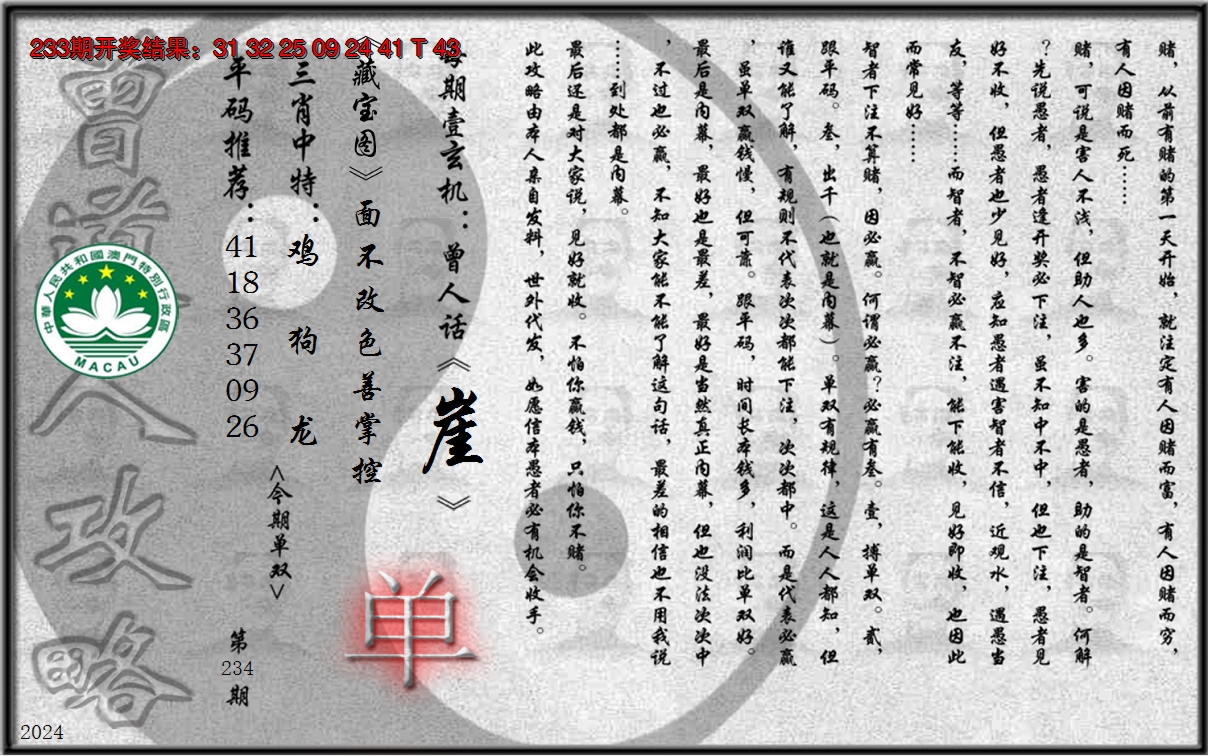 233期开奖结果：31 32 25 09 24 41 T 43
赌，从前有赌的第一天开始，就注定有人因赌而富，有人因赌而穷，
有人因赌而死……
赌，可说是害人不浅，但助人也多。害的是愚者，助的是智者。何解
？先说愚者，愚者逢开奖必下注，虽不知中不中，但也下注，愚者见
好不收，但愚者也少见好，应知愚者遇害智者不信，近观水，遇愚当
友，等等……而智者，不智必赢不注，能下能收，见好即收，也因此
而常见好……
智者下注不算赌，因必赢。何谓必赢？必赢有叁。壹，搏单双。贰，
跟平码。叁，出千（也就是内幕）。单双有规律，这是人人都知，但
谁又能了解，有规则不代表次次都能下注，次次都中。而是代表必赢
，虽单双赢钱慢，但可靠。跟平码，时间长本钱多，利润比单双好。
最后是内幕，最好也是最差，最好是当然真正内幕，但也没法次次中
，不过也必赢，不知大家能不能了解这句话，最差的相信也不用我说
……到处都是内幕。
最后还是对大家说，见好就收。不怕你赢钱，只怕你不赌。
此攻略由本人亲自发料，世外代发，如愿信本愚者必有机会收手。
每期壹玄机：曾人话《崖》
《藏宝图》面不改色善掌控
单
三肖中特：鸡 狗 龙
<今期单双>
平码推荐：
41
18
36
37
09
26
第
234
期
曾道人攻略
中華人民共和國澳門特別行政區
MACAU
2024